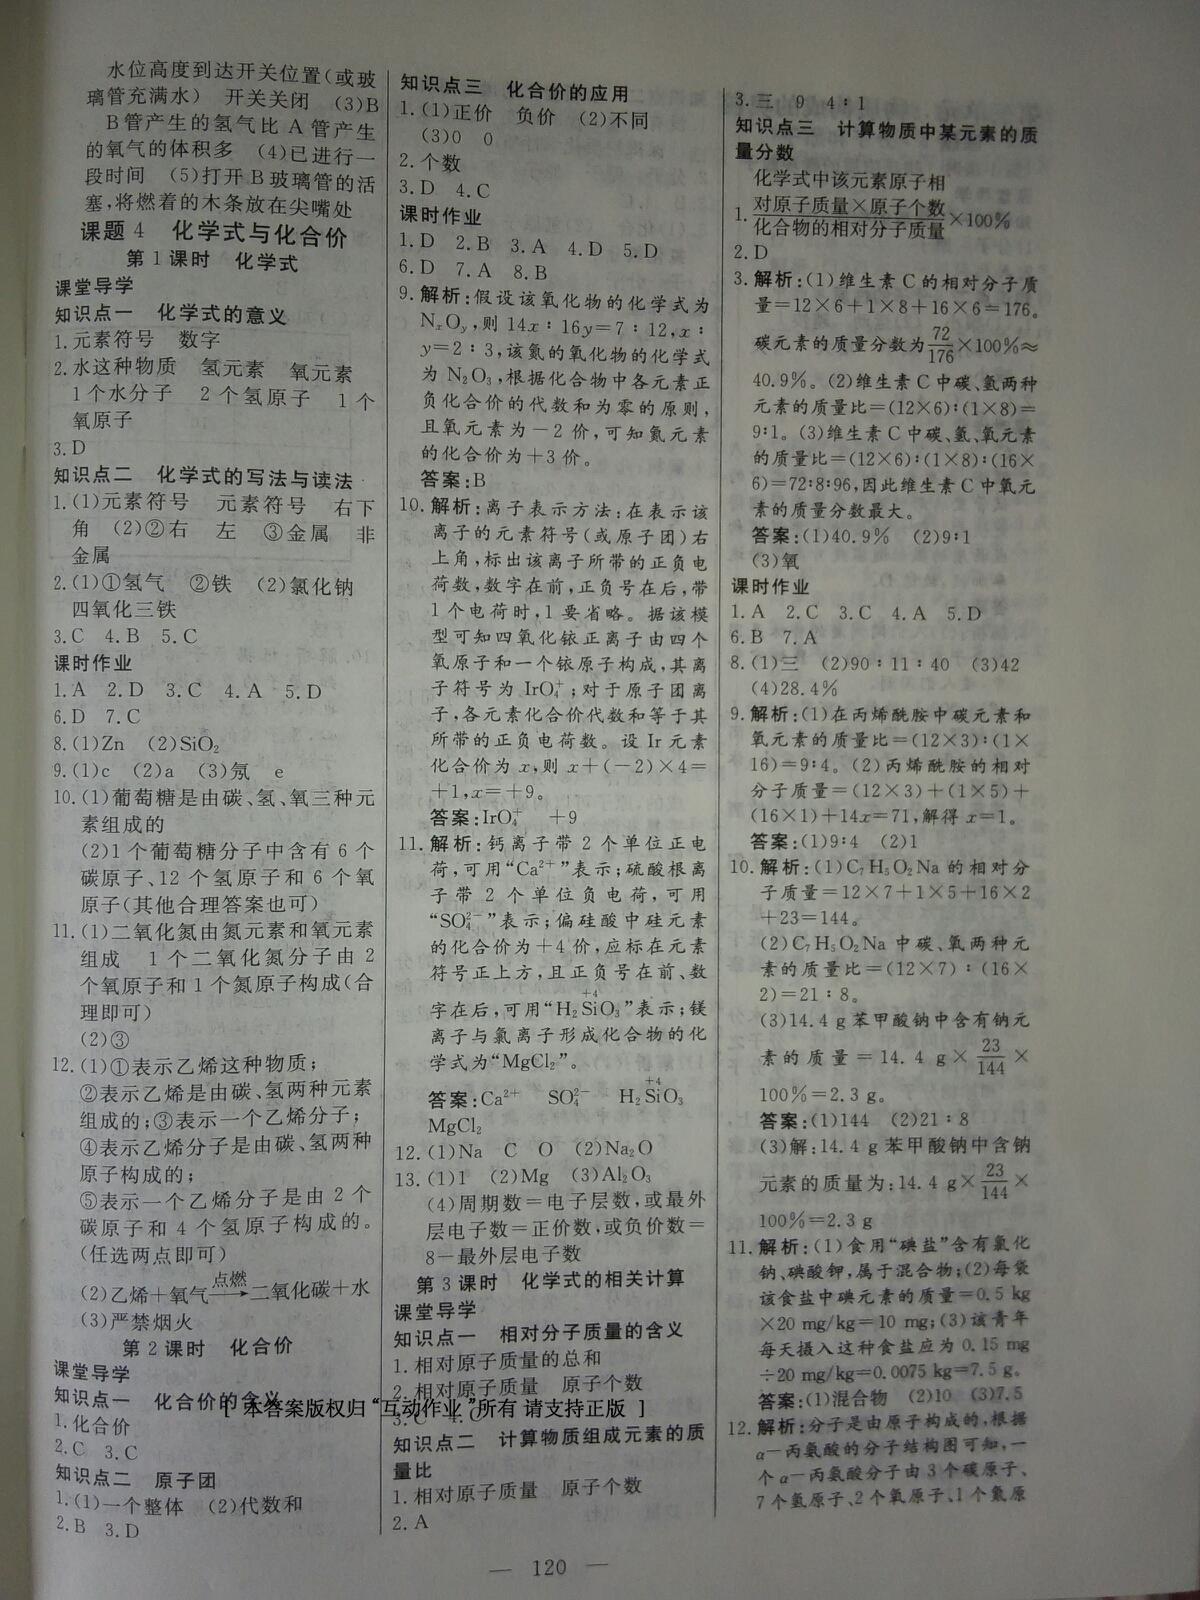 水位高度到达开关位置(或玻
璃管充满水) 开关关闭 (3)B
B管产生的氢气比A管产生
的氧气的体积多 (4)已进行一
段时间 (5)打开B玻璃管的活
塞,将燃着的木条放在尖嘴处
课题4 化学式与化合价
第1课时 化学式
课堂导学
知识点一 化学式的意义
1.元素符号 数字
2.水这种物质 氢元素 氧元素
1个水分子 2个氢原子 1个
氧原子
3.D
知识点二 化学式的写法与读法
1.(1)元素符号 元素符号 右下
角 (2)②右 左 ③金属 非
金属
2.(1)①氢气 ②铁 (2)氯化钠
四氧化三铁
3.C 4.B 5.C
课时作业
1.A 2.D 3.C 4.A 5.D
6.D 7.C
8.(1)Zn (2)SiO₂
9.(1)c (2)a (3)氖 e
10.(1)葡萄糖是由碳、氢、氧三种元
素组成的
(2)1个葡萄糖分子中含有6个
碳原子、12个氢原子和6个氧
原子(其他合理答案也可)
11.(1)二氧化氮由氮元素和氧元素
组成 1个二氧化氮分子由2
个氧原子和1个氮原子构成(合
理即可)
(2)③
12.(1)①表示乙烯这种物质;
②表示乙烯是由碳、氢两种元素
组成的;③表示一个乙烯分子;
④表示乙烯分子是由碳、氢两种
原子构成的;
⑤表示一个乙烯分子是由2个
碳原子和4个氢原子构成的。
(任选两点即可)
(2)乙烯+氧气 点燃→ 二氧化碳+水
(3)严禁烟火
第2课时 化合价
课堂导学
知识点一 化合价的含义
1.化合价
2.C 3.C
知识点二 原子团
1.(1)一个整体 (2)代数和
2.B 3.D
知识点三 化合价的应用
1.(1)正价 负价 (2)不同
(3)0 0
2.个数
3.D 4.C
课时作业
1.D 2.B 3.A 4.D 5.D
6.D 7.A 8.B
9.解析:假设该氧化物的化学式为
NₓOᵧ,则14x∶16y=7∶12,x∶
y=2∶3,该氮的氧化物的化学式
为N₂O₃,根据化合物中各元素正
负化合价的代数和为零的原则,
且氧元素为-2价,可知氮元素
的化合价为+3价。
答案:B
10.解析:离子表示方法:在表示该
离子的元素符号(或原子团)右
上角,标出该离子所带的正负电
荷数,数字在前,正负号在后,带
1个电荷时,1要省略。据该模
型可知四氧化铱正离子由四个
氧原子和一个铱原子构成,其离
子符号为IrO₄⁺;对于原子团离
子,各元素化合价代数和等于其
所带的正负电荷数。设Ir元素
化合价为x,则x+(-2)×4=
+1,x=+9。
答案:IrO₄⁺ +9
11.解析:钙离子带2个单位正电
荷,可用“Ca²⁺”表示;硫酸根离
子带2个单位负电荷,可用
“SO₄²⁻”表示;偏硅酸中硅元素
的化合价为+4价,应标在元素
符号正上方,且正负号在前、数
+4
字在后,可用“H₂SiO₃”表示;镁
离子与氯离子形成化合物的化
学式为“MgCl₂”。
+4
答案:Ca²⁺ SO₄²⁻ H₂SiO₃
MgCl₂
12.(1)Na C O (2)Na₂O
13.(1)1 (2)Mg (3)Al₂O₃
(4)周期数=电子层数,或最外
层电子数=正价数,或负价数=
8-最外层电子数
第3课时 化学式的相关计算
课堂导学
知识点一 相对分子质量的含义
1.相对原子质量的总和
2.相对原子质量 原子个数
3.C 4.C
[ 本答案版权归“互动作业”所有 请支持正版 ]
知识点二 计算物质组成元素的质
量比
1.相对原子质量 原子个数
2.A
3.三 9 4∶1
知识点三 计算物质中某元素的质
量分数
化学式中该元素原子相
1.对原子质量×原子个数/化合物的相对分子质量×100%
2.D
3.解析:(1)维生素C的相对分子质
量=12×6+1×8+16×6=176。
碳元素的质量分数为72/176×100%≈
40.9%。(2)维生素C中碳、氢两种
元素的质量比=(12×6)∶(1×8)=
9∶1。(3)维生素C中碳、氢、氧元素
的质量比=(12×6)∶(1×8)∶(16×
6)=72∶8∶96,因此维生素C中氧元
素的质量分数最大。
答案:(1)40.9% (2)9∶1
(3)氧
课时作业
1.A 2.C 3.C 4.A 5.D
6.B 7.A
8.(1)三 (2)90∶11∶40 (3)42
(4)28.4%
9.解析:(1)在丙烯酰胺中碳元素和
氧元素的质量比=(12×3)∶(1×
16)=9∶4。(2)丙烯酰胺的相对
分子质量=(12×3)+(1×5)+
(16×1)+14x=71,解得x=1。
答案:(1)9∶4 (2)1
10.解析:(1)C₇H₅O₂Na的相对分
子质量=12×7+1×5+16×2
+23=144。
(2)C₇H₅O₂Na中碳、氧两种元
素的质量比=(12×7)∶(16×
2)=21∶8。
(3)14.4 g苯甲酸钠中含有钠元
素的质量=14.4 g×23/144×
100%=2.3 g。
答案:(1)144 (2)21∶8
(3)解:14.4 g苯甲酸钠中含钠
元素的质量为:14.4 g×23/144×
100%=2.3 g
11.解析:(1)食用“碘盐”含有氯化
钠、碘酸钾,属于混合物;(2)每袋
该食盐中碘元素的质量=0.5 kg
×20 mg/kg=10 mg;(3)该青年
每天摄入这种食盐应为0.15 mg
÷20 mg/kg=0.0075 kg=7.5 g。
答案:(1)混合物 (2)10 (3)7.5
12.解析:分子是由原子构成的,根据
α-丙氨酸的分子结构图可知,一
个α-丙氨酸分子由3个碳原子、
7个氢原子、2个氧原子、1个氮原
— 120 —